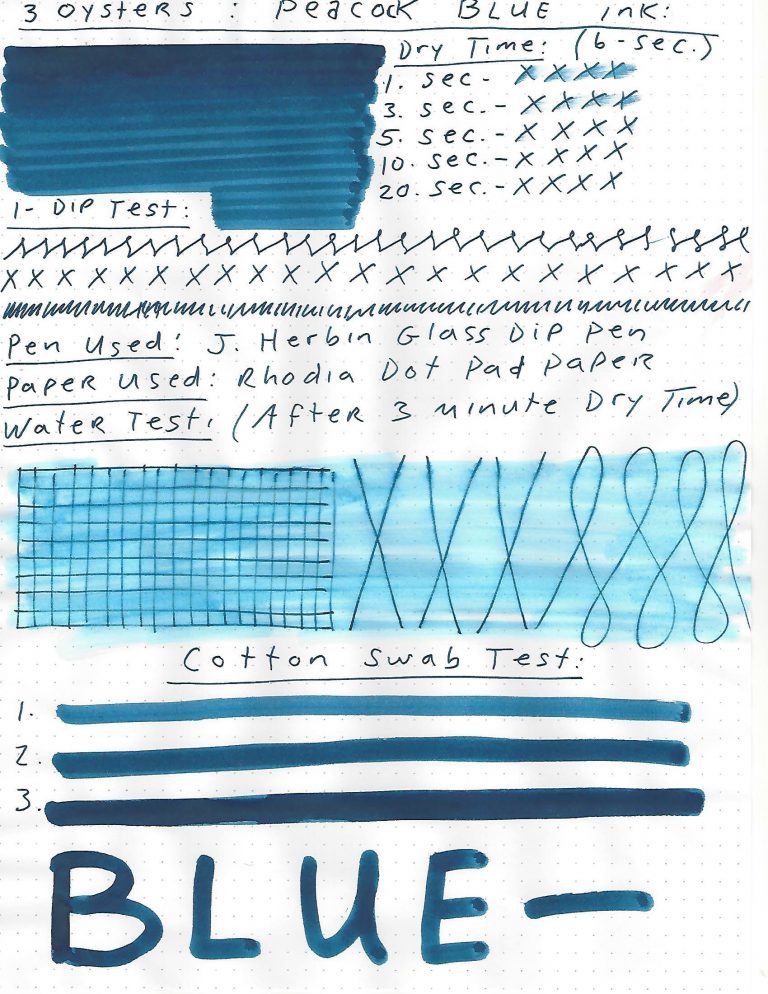 3 Oysters : Peacock BLUE ink:
Dry Time: (6-sec.)
1. sec - x x x x
3. sec. - x x x x
5. sec. - x x x x
10. sec. - x x x x
20. sec. - x x x x
1- Dip Test:
x x x x x x x x x x x x x x x x x x x x x x x x
Pen Used: J. Herbin Glass Dip Pen
Paper Used: Rhodia Dot Pad Paper
Water Test: (After 3 minute Dry Time)
Cotton Swab Test:
1.
2.
3.
BLUE-